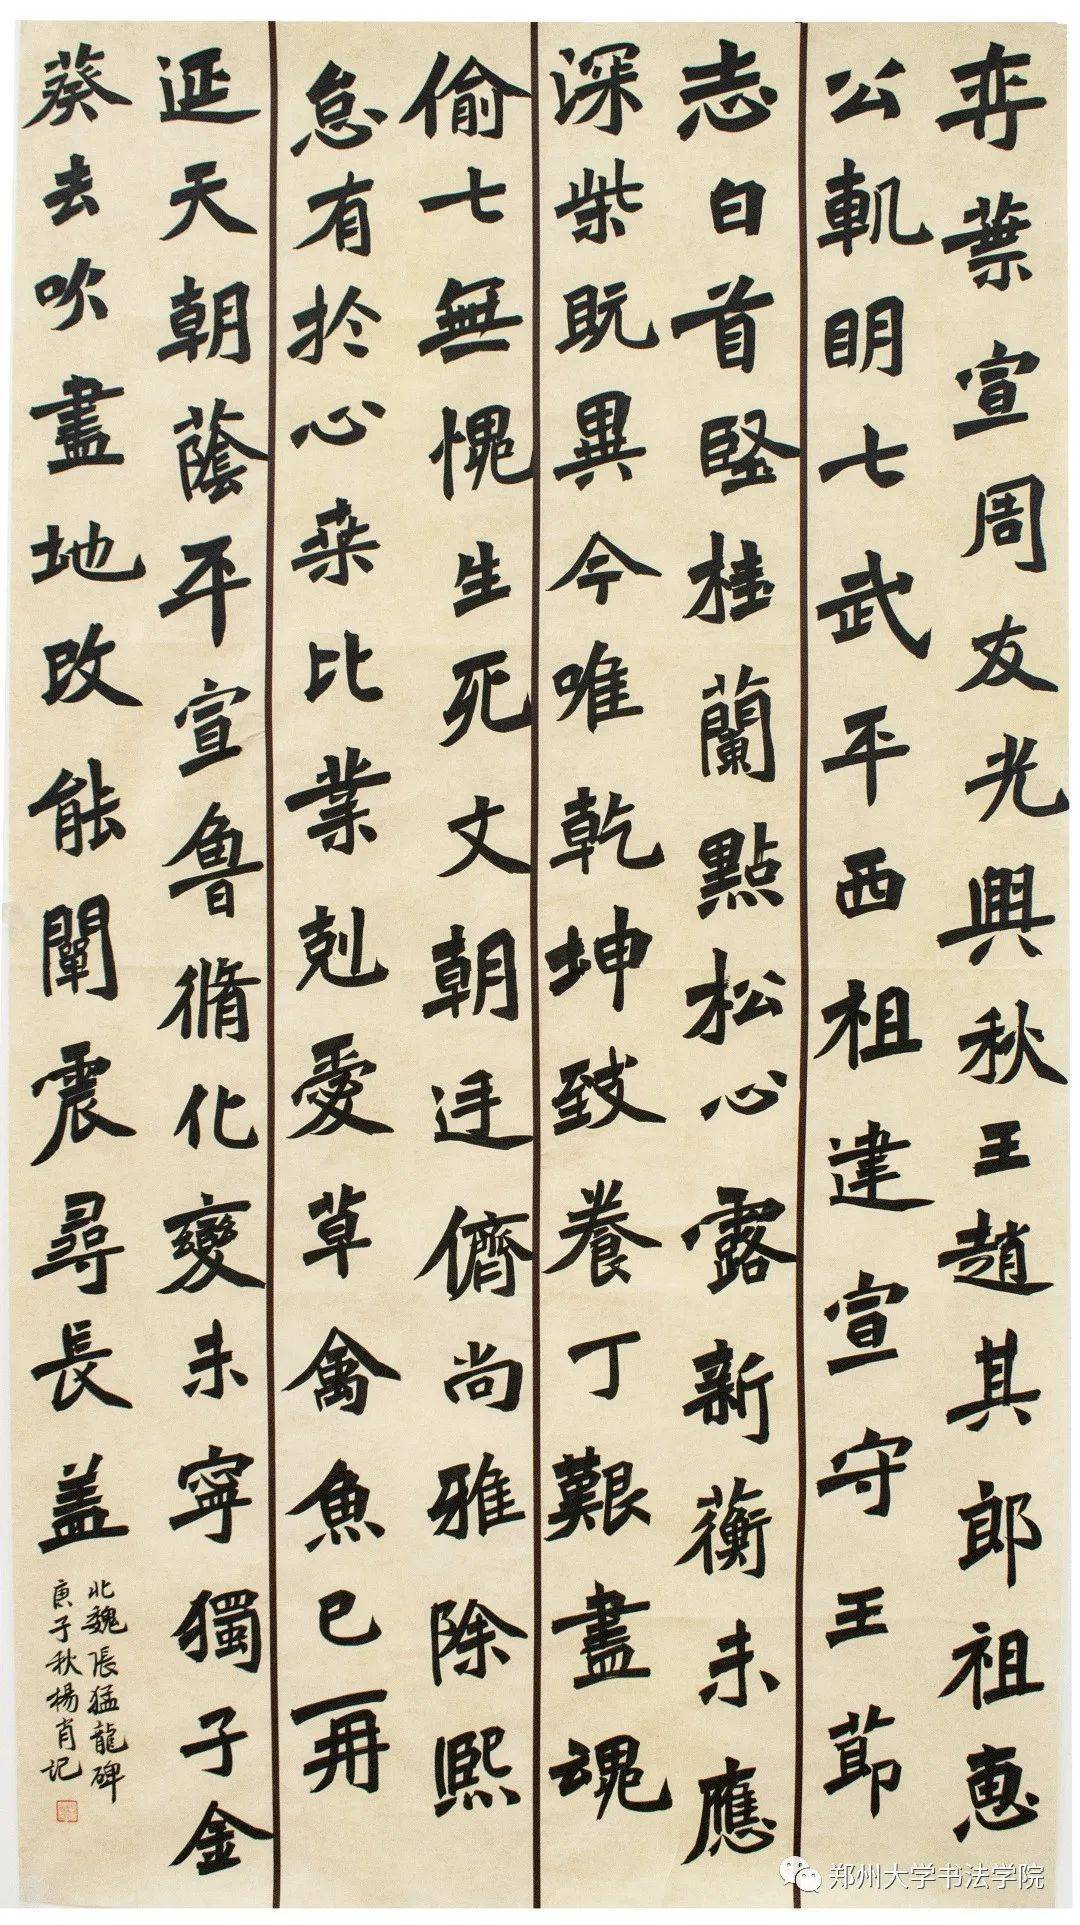 弈葉宣周友光興秋王趙其郎祖惠
公軌明七武平西祖建宣守王節
志白首堅桂蘭點松心露新蘅未應
深柴既異今唯乾坤致養丁艱盡魂
偷七無愧生死文朝迂儕尚雅除熙
怠有於心桒比業剋愛草禽魚已再
延天朝蔭平宣魯脩化變未寧獨子金
葵去吹盡地改能闡震尋長盖
北魏張猛龍碑
庚子秋楊肖记
郑州大学书法学院